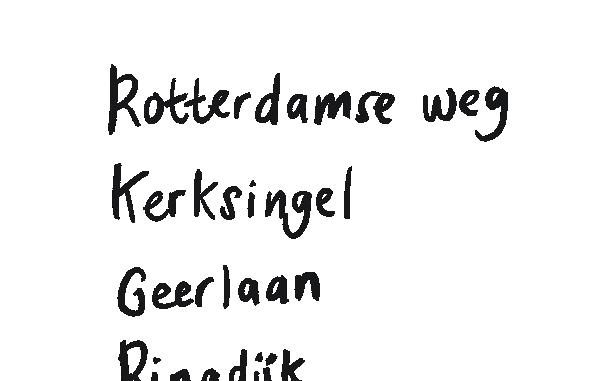 Rotterdamse weg
Kerksingel
Geerlaan
Ringdijk